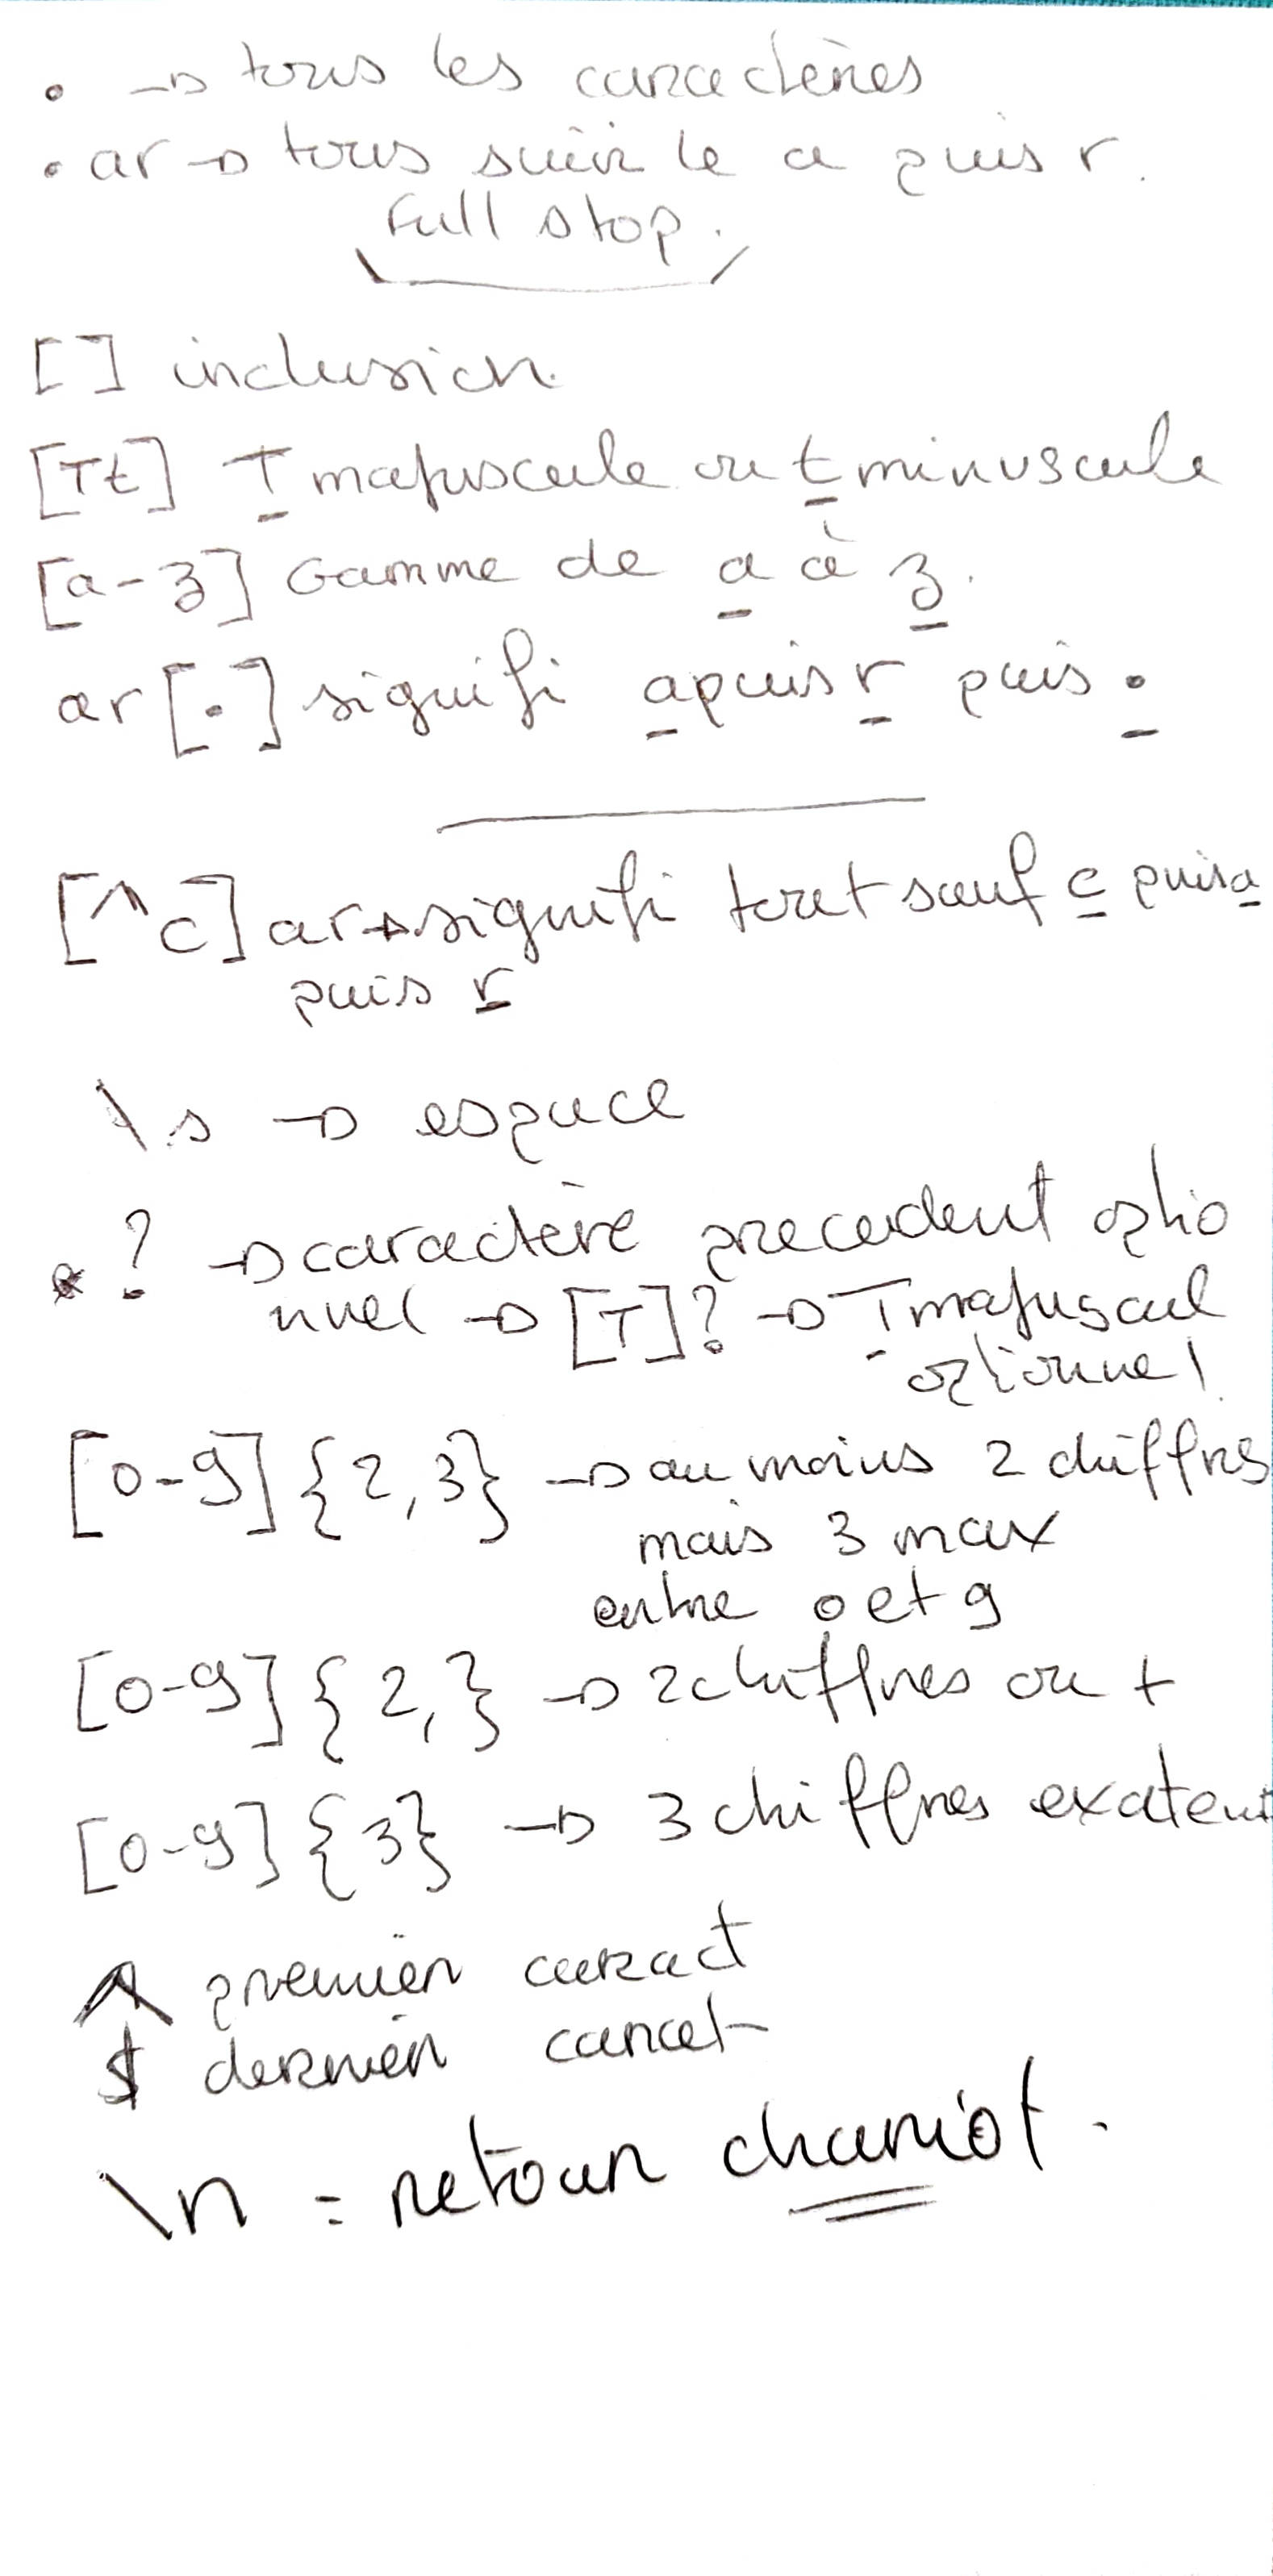 . → tous les caractères
.ar → tous suivi le a puis r.
Full stop.
[] inclusion.
[Tt] T majuscule ou t minuscule
[a-z] Gamme de a à z.
ar[.] signifi a puis r puis .
[^c]ar → signifi tout sauf c puis a
puis r
\s → espace
? → caractère precedent optio
nnel → [T]? → T majuscul
optionnel.
[0-9]{2,3} → au moins 2 chiffres
mais 3 max
entre 0 et 9
[0-9]{2,} → 2 chiffres ou +
[0-9]{3} → 3 chiffres exatem
^ premier caract
$ dernier caract
\n = retour chariot.